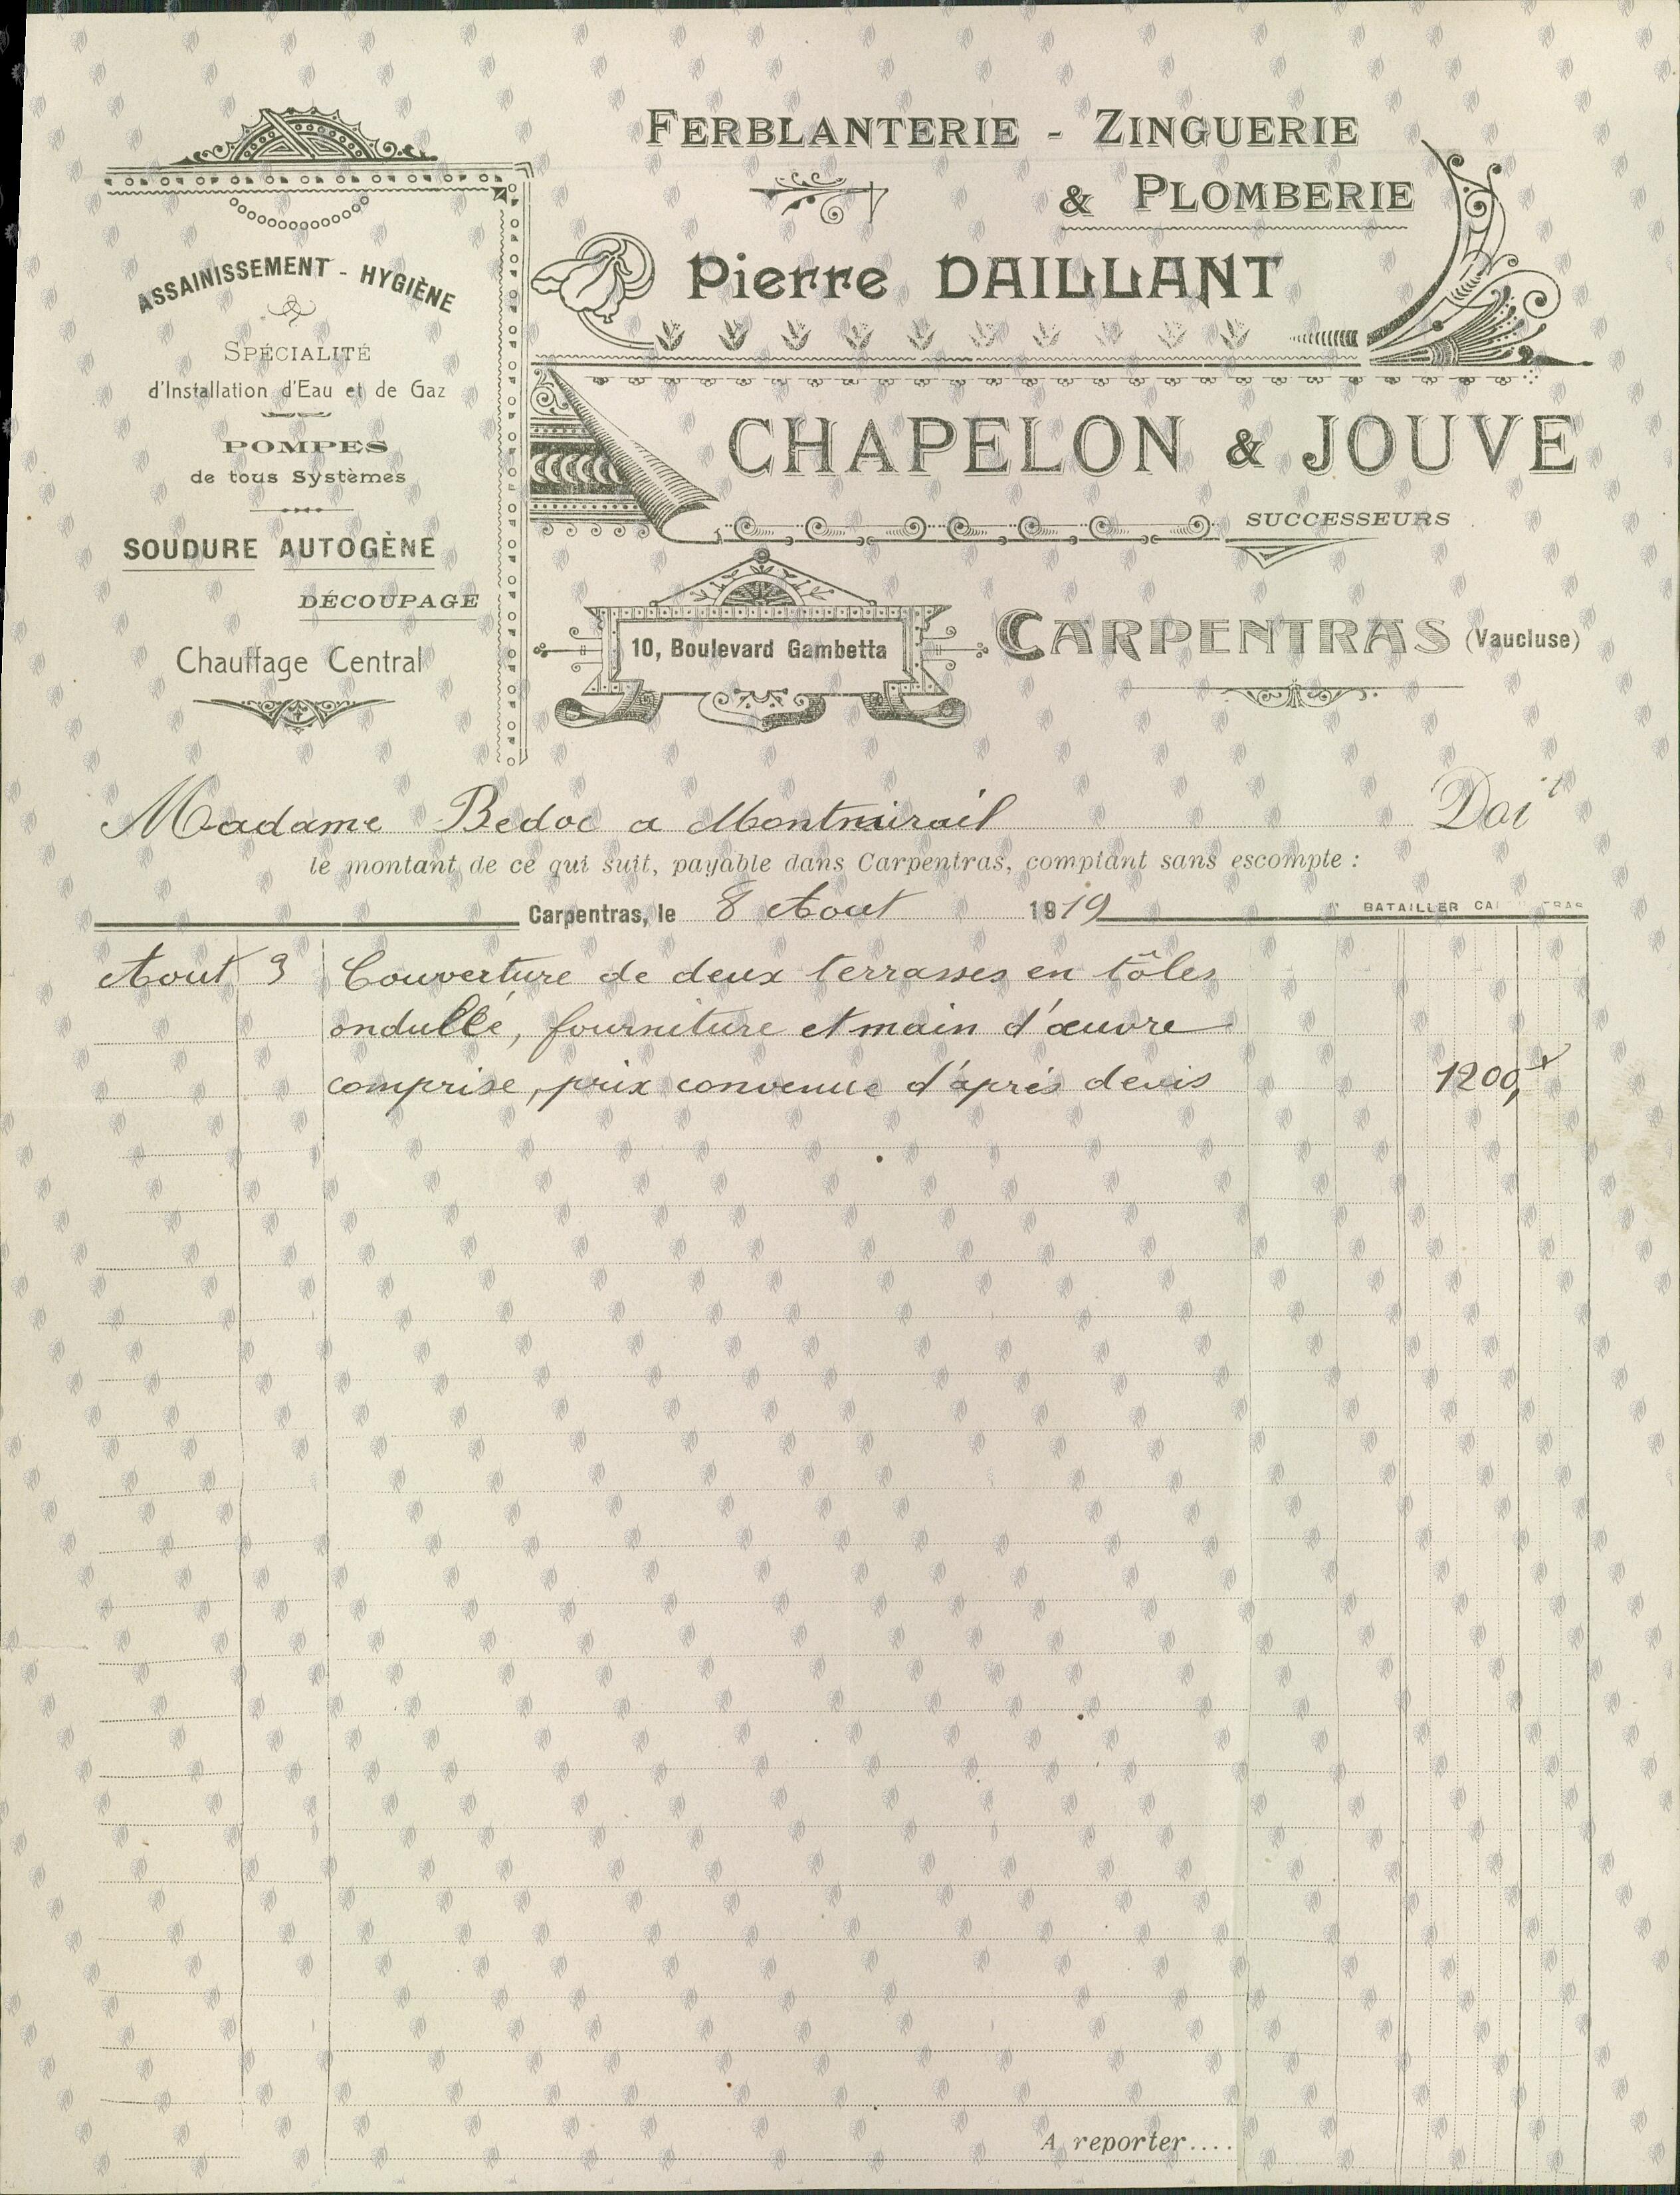 FERBLANTERIE - ZINGUERIE
& PLOMBERIE
Pierre DAILLANT
CHAPELON & JOUVE
SUCCESSEURS
10, Boulevard Gambetta
CARPENTRAS (Vaucluse)
ASSAINISSEMENT - HYGIÈNE
SPÉCIALITÉ
d'Installation d'Eau et de Gaz
POMPES
de tous Systèmes
SOUDURE AUTOGÈNE
DÉCOUPAGE
Chauffage Central
Madame Bedoc a Montmirail Doit
le montant de ce qui suit, payable dans Carpentras, comptant sans escompte :
Carpentras, le 8 Aout 1919
BATAILLER
Aout 9 Couverture de deux terrasses en tôles
ondullé, fourniture et main d'œuvre
comprise, prix convenue d'aprés devis 1200,
A reporter....